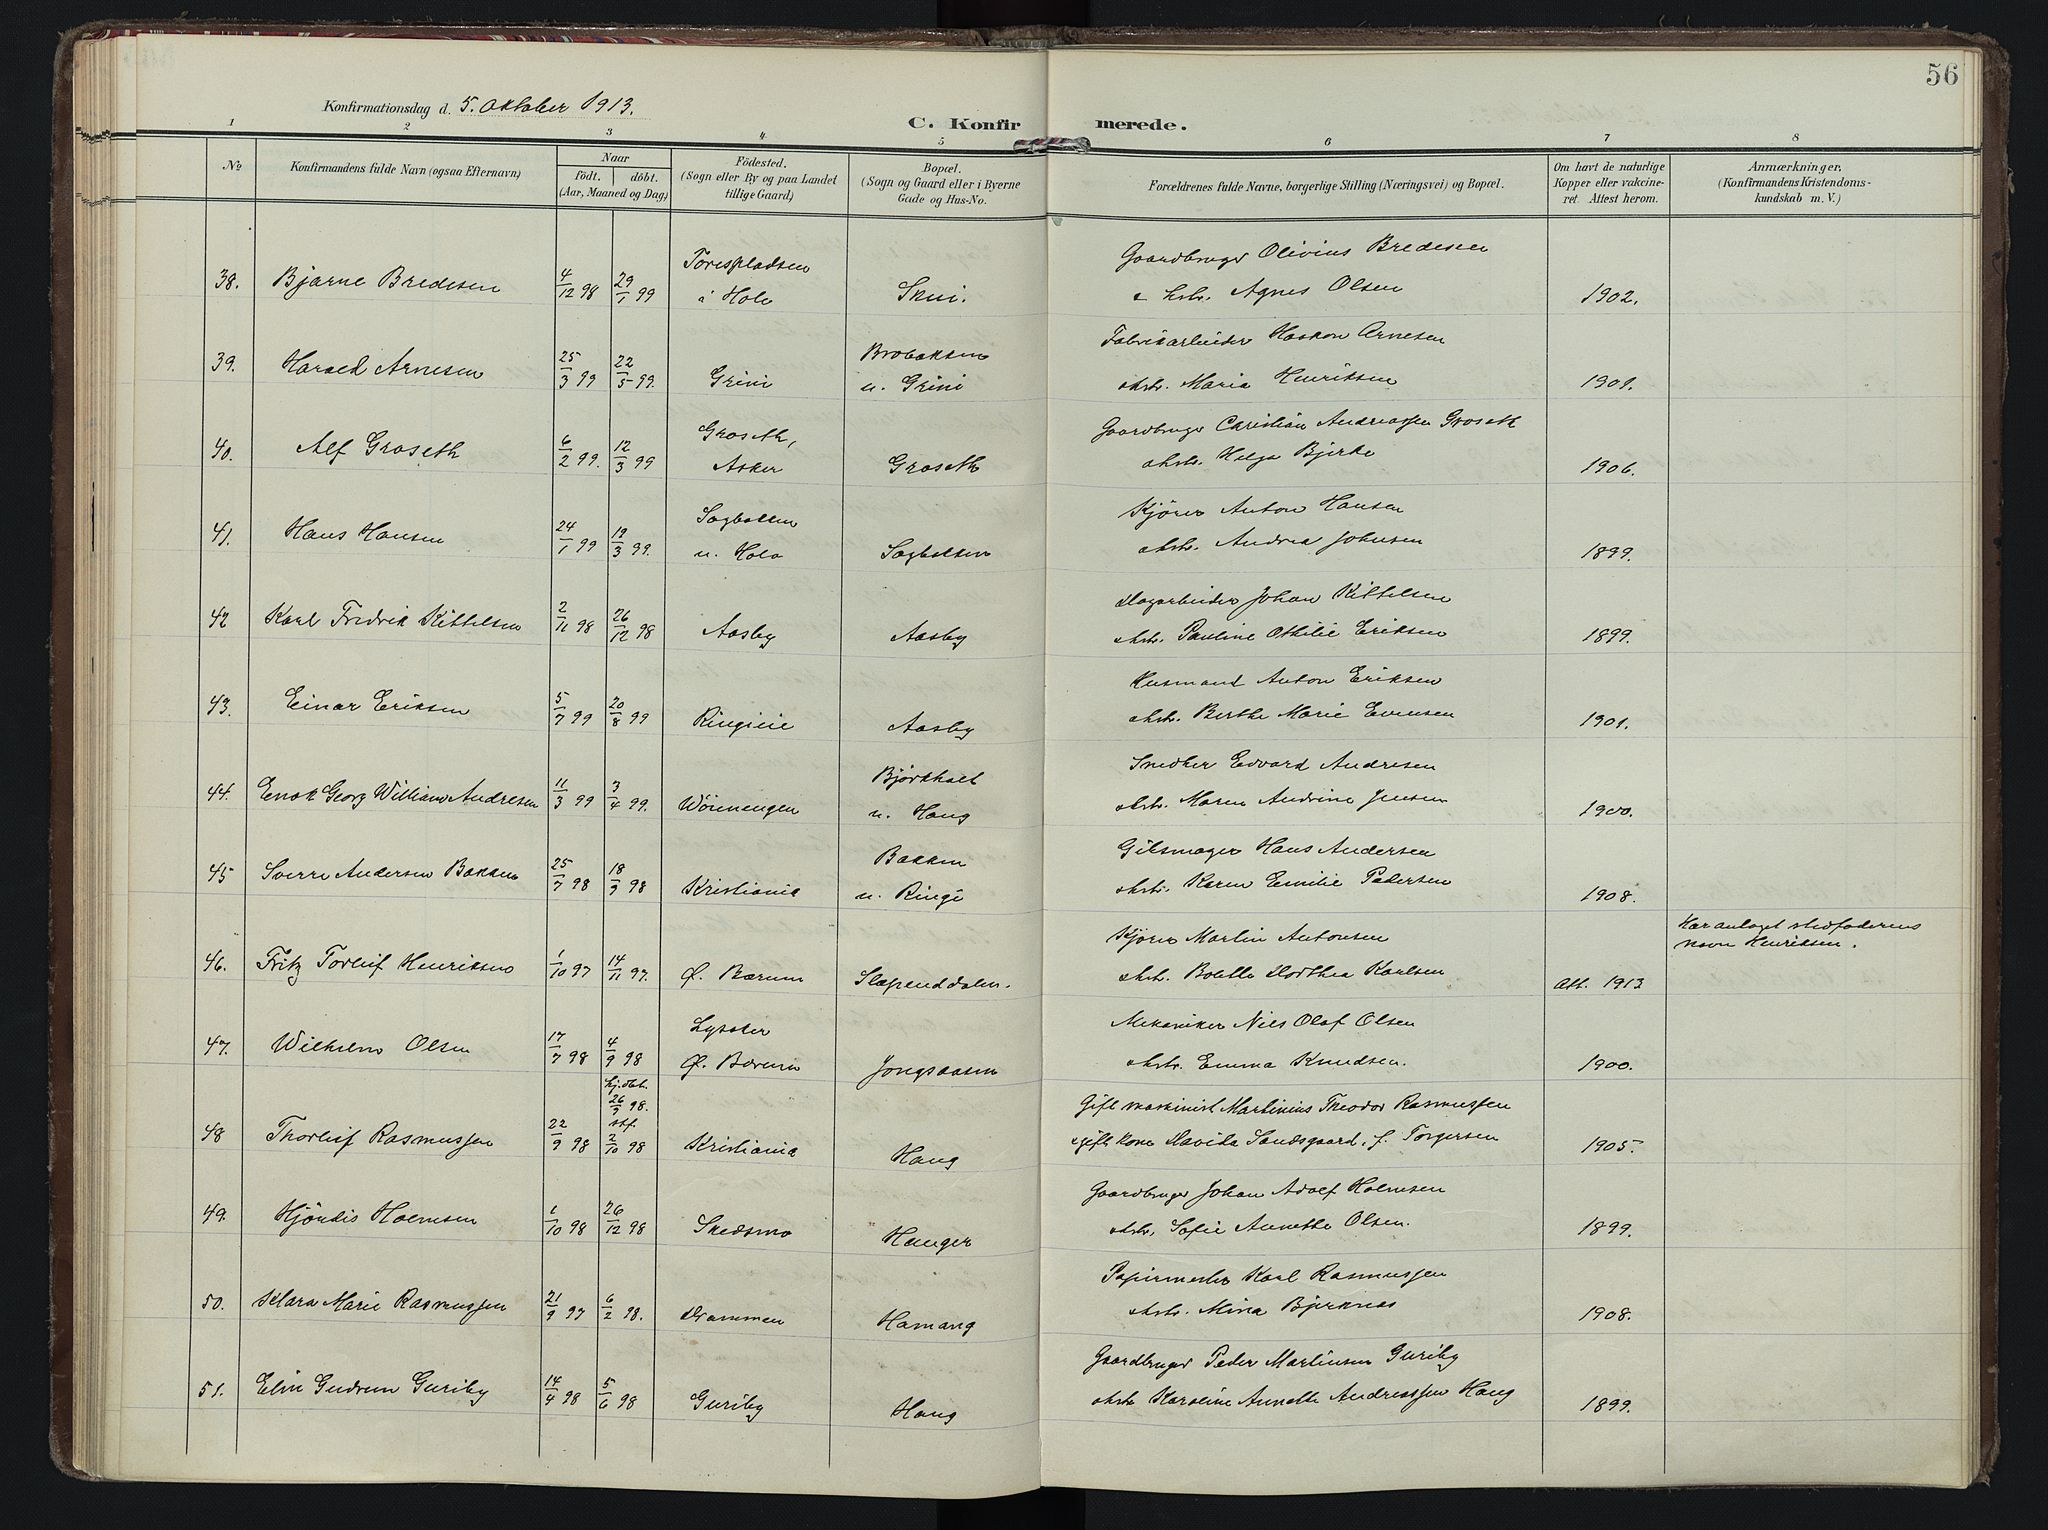 56
Konfirmationsdag d. 5. Oktober 1913.
C. Konfirmerede.
1 2 3 4 5 6 7 8
No
Konfirmandens fulde Navn (ogsaa Efternavn)
Naar
födt. döbt.
(Aar, Maaned og Dag)
Födested.
(Sogn eller By og paa Landet
tillige Gaard)
Bopæl.
(Sogn og Gaard eller i Byerne
Gade og Hus-No.
Forældrenes fulde Navne, borgerlige Stilling (Næringsvei) og Bopæl.
Om havt de naturlige
Kopper eller vakcine-
ret. Attest herom.
Anmærkninger,
(Konfirmandens Kristendoms-
kundskab m. V.)
38. Bjarne Bredesen 4/12 98 29/1 99 Torespladsen
i Holo Skui. Gaardbruger Olivius Bredesen
& hstr. Agnes Olsen 1902.
39. Harald Arnesen 25/3 99 22/5 99. Grini Brobakken
u. Grini Fabrikarbeider Haakon Arnesen
ohstr. Maria Henriksen 1901.
40. Alf Groseth 6/2 99. 12/3 99 Groseth,
Asker Groseth Gaardbruger Christian Andreassen Groseth
ohstr. Helga Bjerke 1906.
41. Hans Hansen 24/1 99 19/3 99. Sagbakken
u. Holo Sagbakken Kjører Anton Hansen
ohstr. Andrea Johnsen 1899.
42 Karl Fredrik Kittelsen 2/11 98 26/12 98 Aasby Aasby Dagarbeider Johan Kittelsen
ohstr. Pauline Othilie Eriksen 1899.
43. Einar Eriksen 5/7 99 20/8 99 Ringieie Aasby Husmand Anton Eriksen
ohstr. Berthe Marie Evensen 1901.
44. Enok Georg William Andresen 11/3 99 3/4 99. Wøienengen Bjørkholt
u. Haug Snedker Edvard Andresen
ohstr. Maren Andrine Jensen 1900.
45 Sverre Andersen Bakken 25/7 98 18/9 98 Kristiania Bakken
u. Ringi Gibsmager Hans Andersen
ohstr. Karen Emilie Pedersen 1908.
46. Fritz Torleif Henriksen 1/10 97 14/11 97. Ø. Bærum Slæpenddalen. Kjører Martin Antonsen
ohstr. Bolette Dorthea Karlsen Att. 1913 Har antaget stedfaderens
navn Henriksen.
47. Wilhelm Olsen 17/7 98 4/9 98 Lysaker
Ø. Bærum Jongsaasen Mekaniker Nils Olaf Olsen
ohstr. Emma Knudsen. 1900.
48 Thorleif Rasmussen 22/9 98 hj.dbt.
26/9 98.
stf.
2/10 98 Kristiania Haug Gift maskinist Martinius Theodor Rasmussen
& gift kone Davida Sandsgaard, f. Torgersen 1905.
49. Hjördis Holmsen 1/10 98 26/12 98 Skedsmo Hauger Gaardbruger Johan Adolf Holmsen
ohstr. Sofie Annette Olsen. 1899.
50. Klara Marie Rasmussen 21/9 97 6/2 98. Drammen Hamang Papirmester Karl Rasmussen
ohstr. Mina Bjerknes 1908.
51. Elin Gudrun Guriby 14/4 98 5/6 98 Guriby Haug Gaardbruger Peder Martinsen Guriby
ohstr Karoline Annette Andreassen Haug 1899.